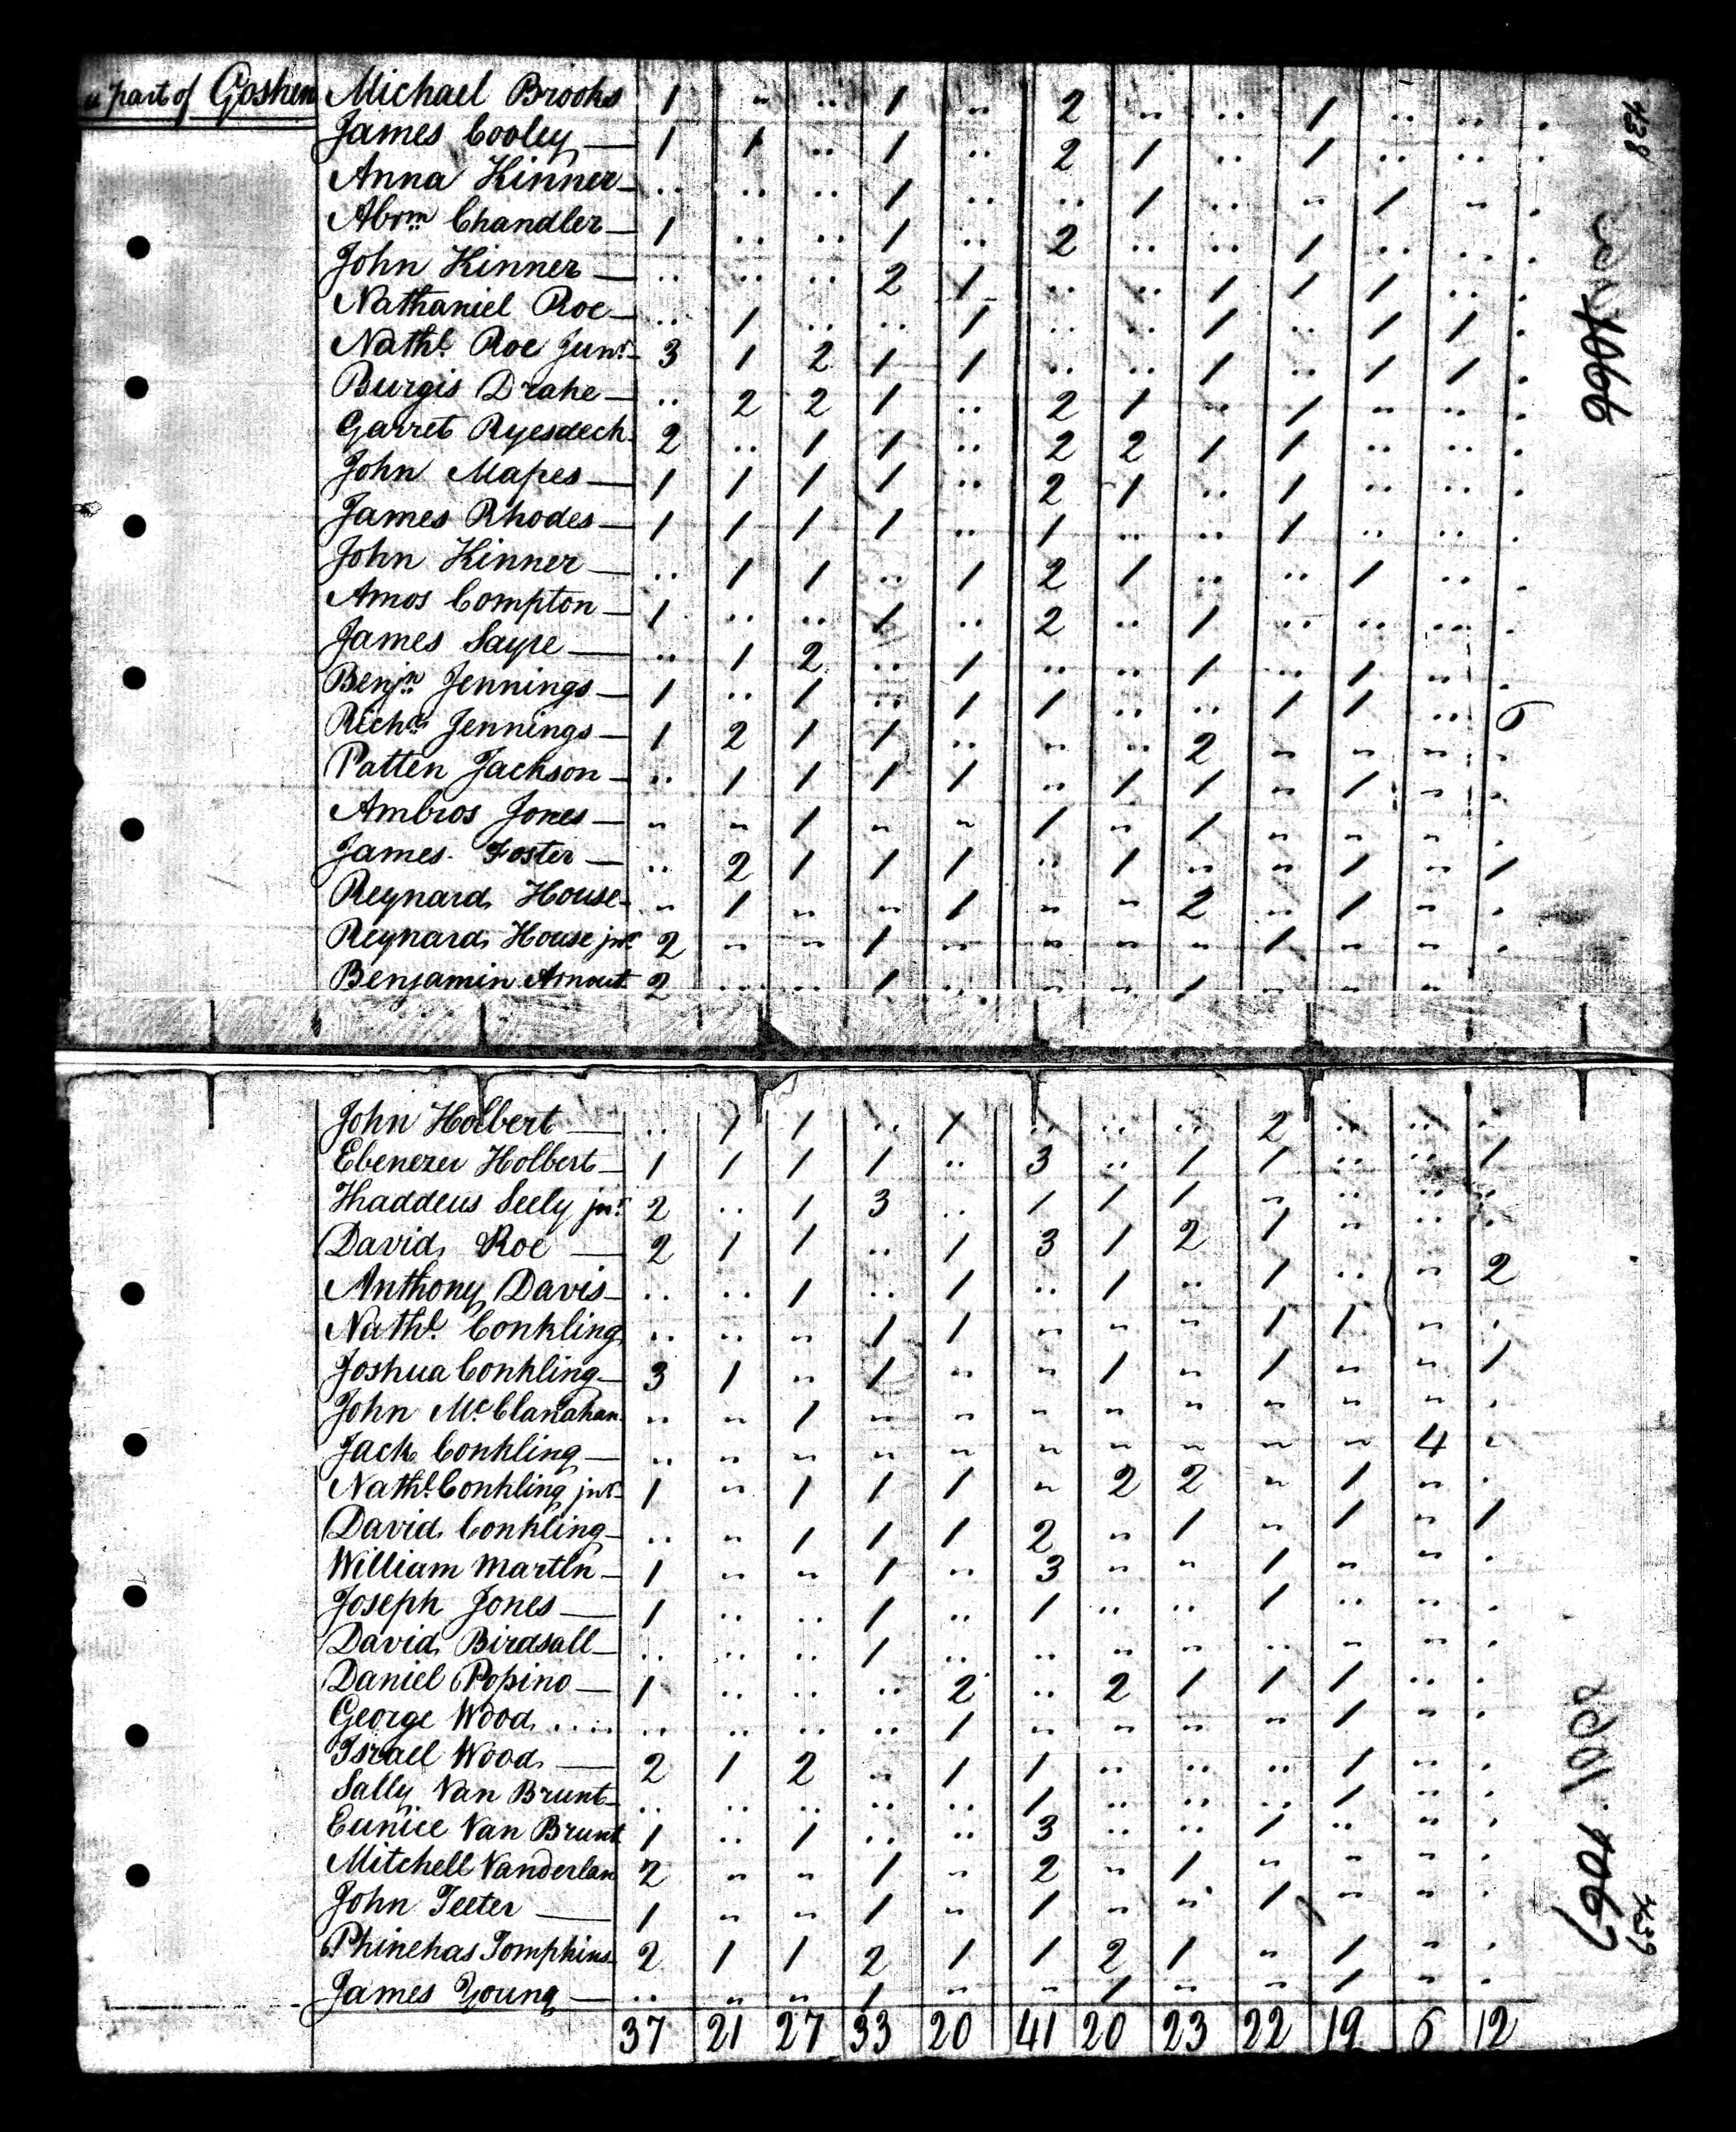 a part of Goshen Michael Brooks 1 .. .. 1 .. 2 .. .. 1 .. .. .
James Cooley — 1 1 .. 1 .. 2 1 .. 1 .. .. .
Anna Kinner — .. .. .. 1 .. .. 1 .. .. 1 .. .
Abrm Chandler — 1 .. .. 1 .. 2 .. .. 1 .. .. .
John Kinner — .. .. .. 2 1 .. .. 1 1 1 .. .
Nathaniel Roe — .. 1 .. .. 1 .. .. 1 .. 1 1 .
Nathl. Roe Junr. — 3 1 2 1 1 .. .. 1 .. 1 1 .
Burgis Drake — .. 2 2 1 .. 2 1 .. 1 .. .. .
Garret Ryesdeck 2 .. 1 1 .. 2 2 1 1 .. .. .
John Mapes — 1 1 1 1 .. 2 1 .. 1 .. .. .
James Rhodes — 1 1 1 1 .. 1 .. .. 1 .. .. .
John Kinner — .. 1 1 .. 1 2 1 .. .. 1 .. .
Amos Compton — 1 .. .. 1 .. 2 .. 1 .. .. .. .
James Sayre — .. 1 2 .. 1 .. .. 1 .. 1 .. .
Benjn. Jennings — 1 .. 1 .. 1 1 .. .. 1 1 .. 6
Richd. Jennings — 1 2 1 1 .. .. .. 2 .. .. .. ..
Patten Jackson — .. 1 1 1 1 .. 1 1 .. 1 .. .
Ambros Jones — .. .. 1 .. .. 1 .. 1 .. .. .. .
James Foster — .. 2 1 1 1 .. 1 .. .. 1 .. 1
Reynard House — .. 1 .. .. 1 .. .. 2 .. 1 .. .
Reynard House jur. 2 .. .. 1 .. .. .. .. 1 .. .. .
Benjamin Arnout 2 .. .. 1 .. .. .. 1 .. .. ..
John Holbert — .. 1 1 .. 1 .. .. .. 2 .. .. .
Ebenezer Holbert — 1 1 1 1 .. 3 .. 1 1 .. .. 1
Thaddeus Seely jur. 2 .. 1 3 .. 1 1 1 .. .. .. ..
David Roe — 2 1 1 .. 1 3 1 2 1 .. .. .
Anthony Davis — .. .. 1 .. 1 .. 1 .. 1 .. .. 2
Nathl. Conkling .. .. .. 1 1 .. .. .. 1 1 .. .
Joshua Conkling — 3 1 .. 1 .. .. 1 .. 1 .. .. 1
John McClanahan .. .. 1 .. .. .. .. .. .. .. .. .
Jack Conkling — .. .. .. .. .. .. .. .. .. .. 4 .
Nathl. Conkling jur. — 1 .. 1 1 1 .. 2 2 .. 1 .. .
David Conkling — .. .. 1 1 1 2 .. 1 .. 1 .. 1
William Martin — 1 .. .. 1 .. 3 .. .. 1 .. .. .
Joseph Jones — 1 .. .. 1 .. 1 .. .. 1 .. .. .
David Birdsall — .. .. .. 1 .. .. .. .. .. .. .. .
Daniel Popino — 1 .. .. .. 2 .. 2 1 1 1 .. .
George Wood .... .. .. .. .. 1 .. .. .. .. 1 .. .
Israel Wood — 2 1 2 .. 1 1 .. .. .. 1 .. .
Sally Van Brunt — .. .. .. .. .. 1 .. .. .. 1 .. .
Eunice Van Brunt 1 .. 1 .. .. 3 .. .. 1 .. .. .
Mitchell Vanderlan 2 .. .. 1 .. 2 .. 1 .. .. .. .
John Teeter — 1 .. .. 1 .. 1 .. .. 1 .. .. .
Phinehas Tompkins 2 1 1 2 1 1 2 1 .. 1 .. .
James Young — .. .. .. 1 .. .. 1 .. .. 1 .. .
37 21 27 33 20 41 20 23 22 19 6 12
438
1066
1067
439